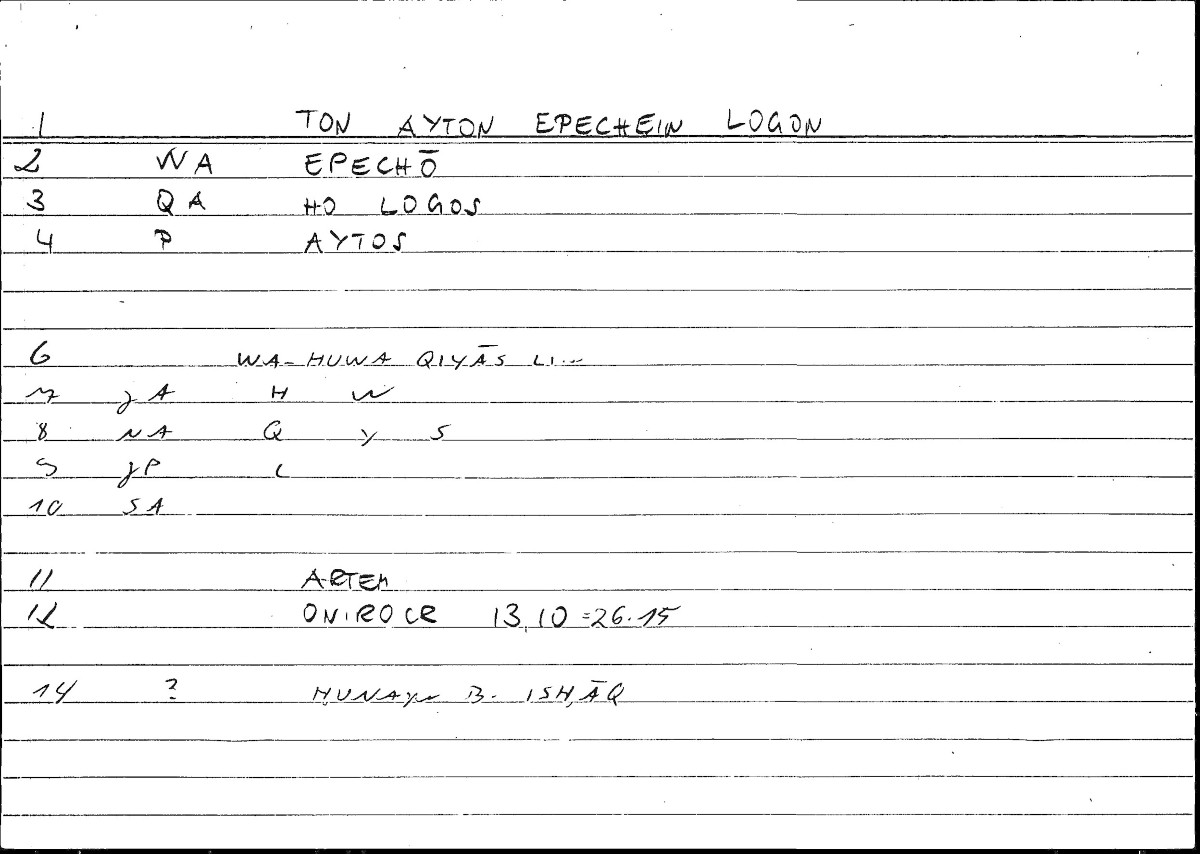 1 TON AYTON EPECHEIN LOGON
2 WA EPECHŌ
3 QA HO LOGOS
4 P AYTOS
6 WA-HUWA QIYĀS LI...
7 JA H W
8 NA Q Y S
9 JP L
10 SA
11 ARTEM
12 ONIROCR 13,10=26.15
14 ? ḤUNAYN B. ISḤĀQ